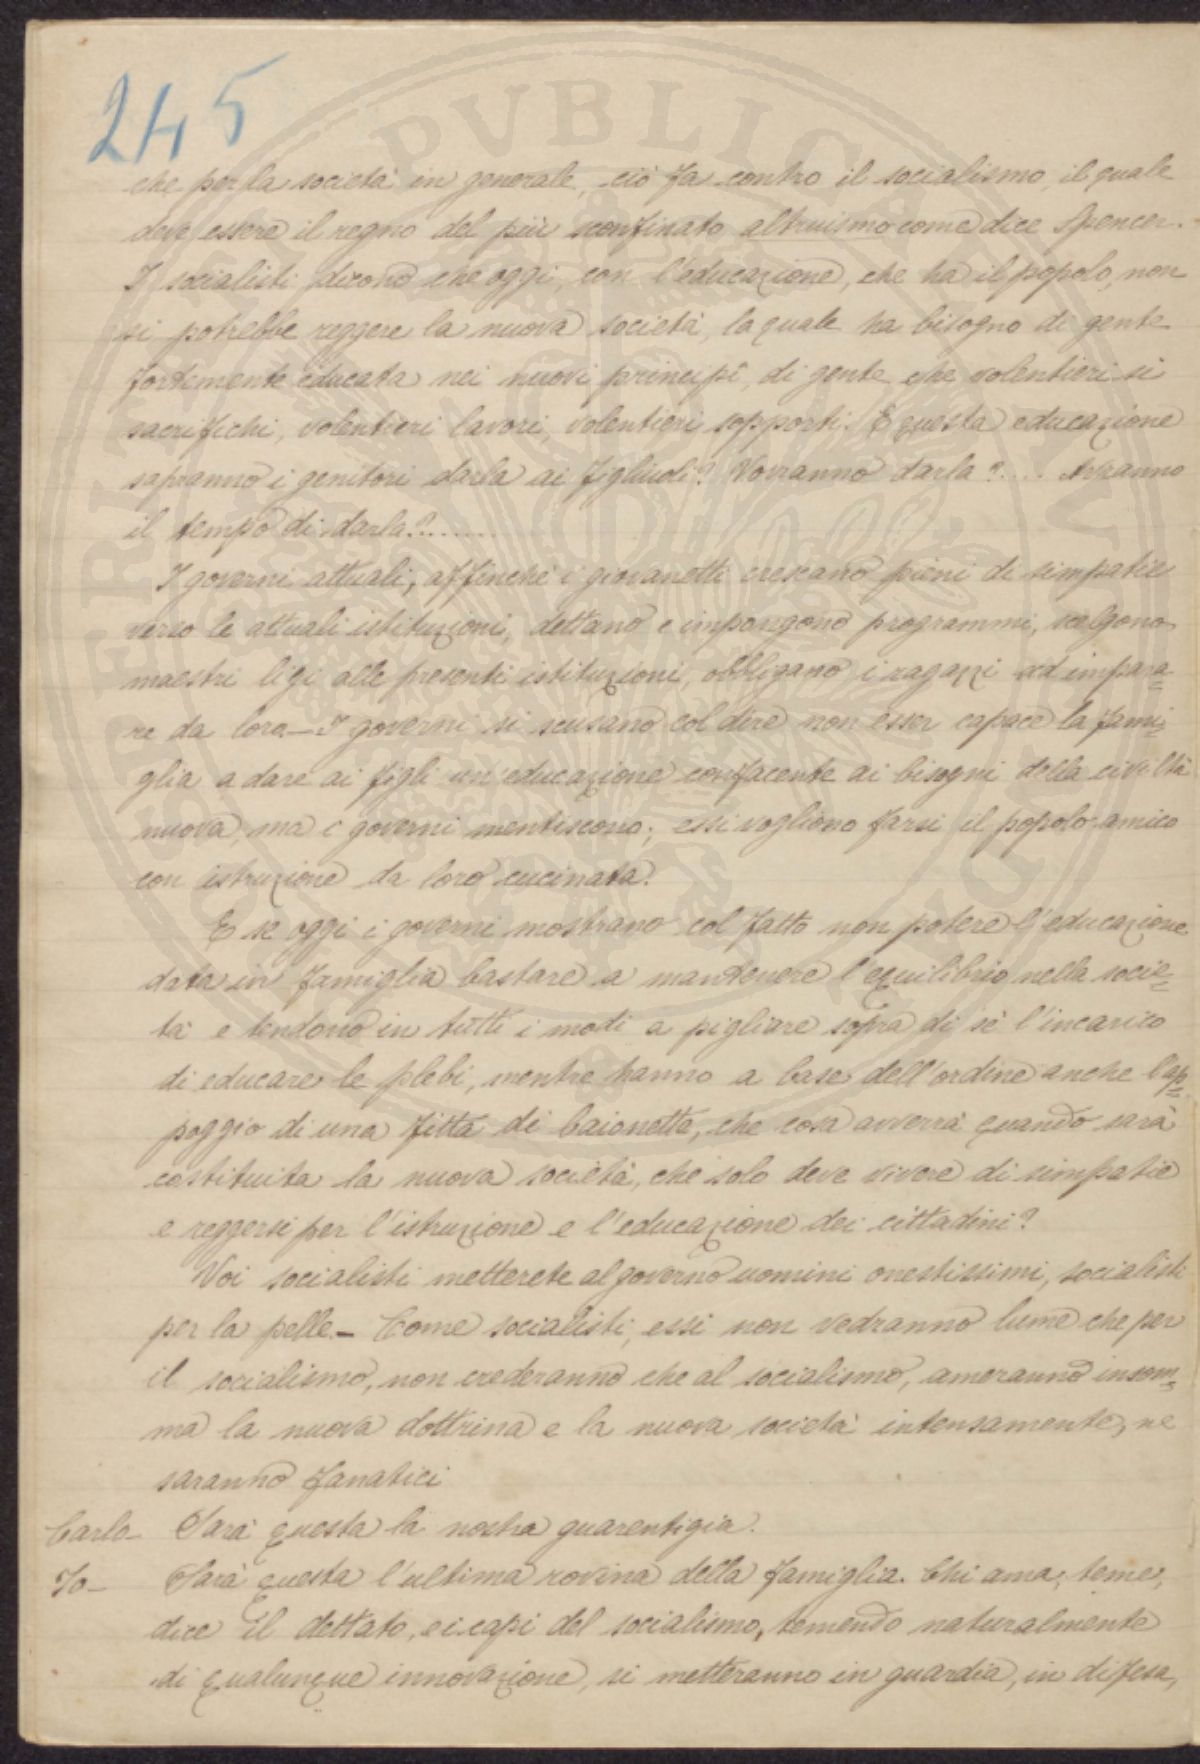 245
che per la società in generale, ciò fa contro il socialismo, il quale
deve essere il regno del più sconfinato altruismo come dice Spencer.
I socialisti dicono che oggi, con l'educazione, che ha il popolo, non
si potrebbe reggere la nuova società, la quale ha bisogno di gente
fortemente educata nei nuovi principî, di gente che volentieri si
sacrifichi, volentieri lavori, volentieri sopporti. E questa educazione
sapranno i genitori darla ai figliuoli? Vorranno darla?.... Avranno
il tempo di darla?........
I governi attuali, affinché i giovanetti crescano pieni di simpatie
verso le attuali istituzioni, dettano e impongono programmi, scelgono
maestri ligi alle presenti istituzioni, obbligano i ragazzi ad impara=
re da loro.— I governi si scusano col dire non esser capace la fami=
glia a dare ai figli un'educazione confacente ai bisogni della civiltà
nuova, ma i governi mentiscono; essi vogliono farsi il popolo amico
con istruzione da loro cucinata.
E se oggi i governi mostrano col fatto non potere l'educazione
data in famiglia bastare a mantenere l'equilibrio nella socie=
tà e tendono in tutti i modi a pigliare sopra di sé l'incarico
di educare le plebi, mentre hanno a base dell'ordine anche l'ap=
poggio di una fitta di baionette, che cosa avverrà quando sarà
costituita la nuova società, che solo deve vivere di simpatie
e reggersi per l'istruzione e l'educazione dei cittadini?
Voi socialisti metterete al governo uomini onestissimi, socialisti
per la pelle.— Come socialisti, essi non vedranno lume che per
il socialismo, non crederanno che al socialismo, ameranno insom=
ma la nuova dottrina e la nuova società intensamente, ne
saranno fanatici
Carlo— Sarà questa la nostra guarentigia.
Io— Sarà questa l'ultima rovina della famiglia. Chi ama, teme,
dice il dettato, e i capi del socialismo, temendo naturalmente
di qualunque innovazione, si metteranno in guardia, in difesa,